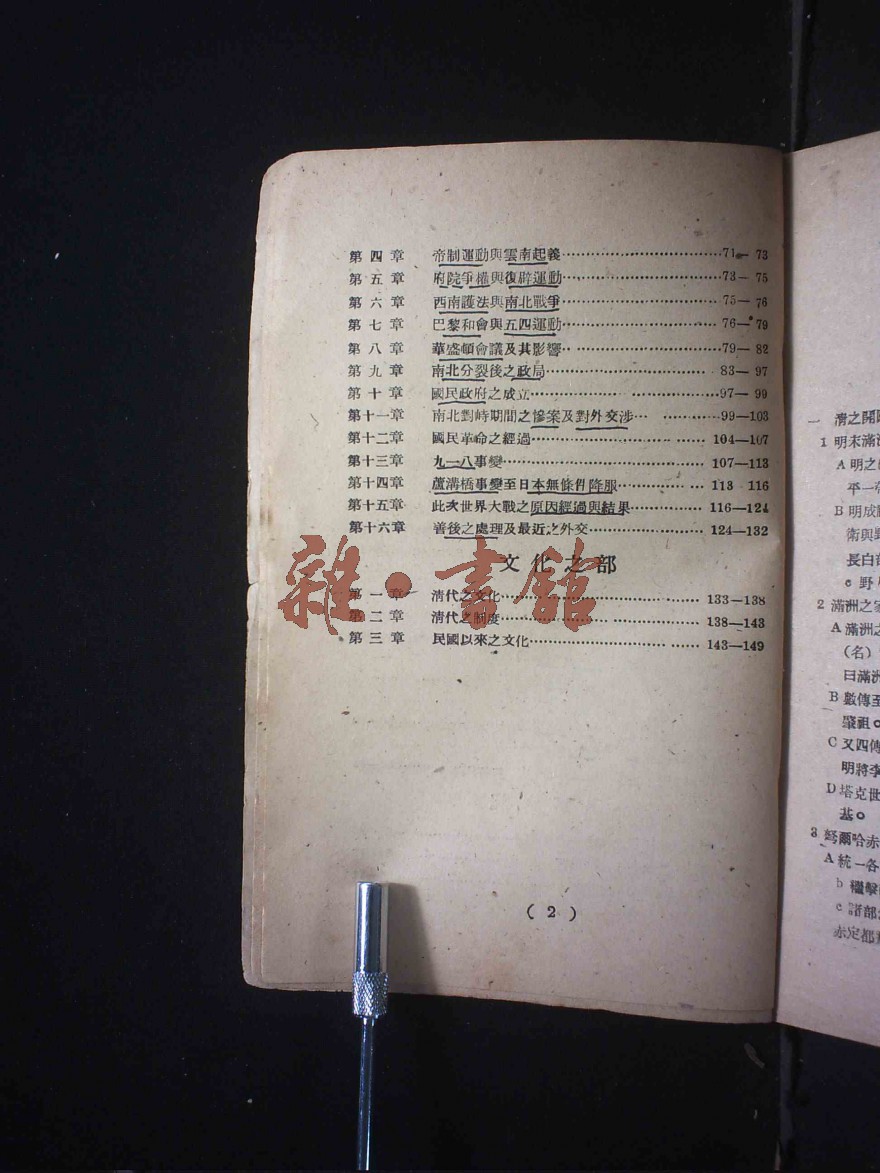 第四章 帝制運動與雲南起義……71— 73
第五章 府院爭權與復辟運動……73— 75
第六章 西南護法與南北戰爭……75— 76
第七章 巴黎和會與五四運動……76— 79
第八章 華盛頓會議及其影響……79— 82
第九章 南北分裂後之政局……83— 97
第十章 國民政府之成立……97— 99
第十一章 南北對峙期間之慘案及對外交涉……99—103
第十二章 國民革命之經過……104—107
第十三章 九一八事變……107—113
第十四章 蘆溝橋事變至日本無條件降服……113 116
第十五章 此次世界大戰之原因經過與結果……116—124
第十六章 善後之處理及最近之外交……124—132
文化之部
第一章 清代之文化……133—138
第二章 清代之制度……138—143
第三章 民國以來之文化……143—149
( 2 )
雜·書館
一 清之開
1 明末滿洲
A 明之
平一
B 明成
衛與野
長白
c 野
2 滿洲之
A 滿洲之
(名)
曰滿洲
B 數傳至
肇祖。
C 又四傳
明將李
D 塔克世
基。
3 弩爾哈赤
A 統一各
b 繼擊
c 諸部
赤定都